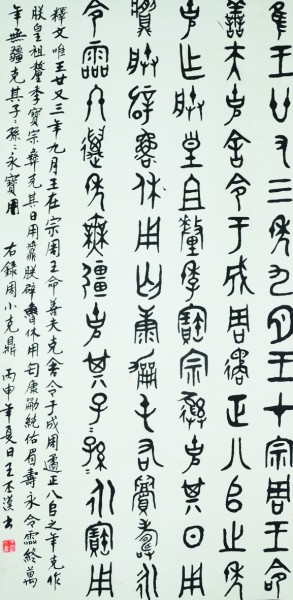 隹王廿又三年九月王才宗周王命
善夫克舍令于成周遹正八𠂤之年
克乍朕皇且釐季寶宗彝克其日用
䵼朕辟魯休用匄康勵屯右眉壽永
令霝冬萬年無疆克其子=孫=永寶用
釋文唯王廿又三年九月王在宗周王命善夫克舍令于成周遹正八𠂤之年克作
朕皇祖釐季寶宗彝克其日用䵼朕辟魯休用匄康勵純佑眉壽永令霝終萬
年無疆克其子=孫=永寶用 右錄周小克鼎 丙申年夏日王漢書